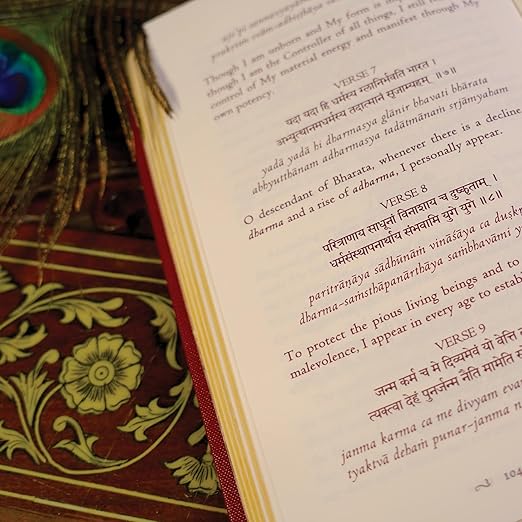 prakṛtiṁ svām adhiṣṭhāya
Though I am unborn and My form is imp
though I am the Controller of all things, I still
control of My material energy and manifest through My
own potency.
VERSE 7
यदा यदा हि धर्मस्य ग्लानिर्भवति भारत ।
अभ्युत्थानमधर्मस्य तदात्मानं सृजाम्यहम् ॥७॥
yadā yadā hi dharmasya glānir bhavati bhārata
abhyutthānam adharmasya tadātmānaṁ sṛjāmyaham
O descendant of Bharata, whenever there is a decline
dharma and a rise of adharma, I personally appear.
VERSE 8
परित्राणाय साधूनां विनाशाय च दुष्कृताम् ।
धर्मसंस्थापनार्थाय संभवामि युगे युगे ॥८॥
paritrāṇāya sādhūnāṁ vināśāya ca duṣkṛ
dharma-saṁsthāpanārthāya sambhavāmi y
To protect the pious living beings and to
malevolence, I appear in every age to establ
VERSE 9
जन्म कर्म च मे दिव्यमेवं यो वेत्ति
त्यक्त्वा देहं पुनर्जन्म नैति मामेति
janma karma ca me divyam eva
tyaktvā dehaṁ punar-janma n
104